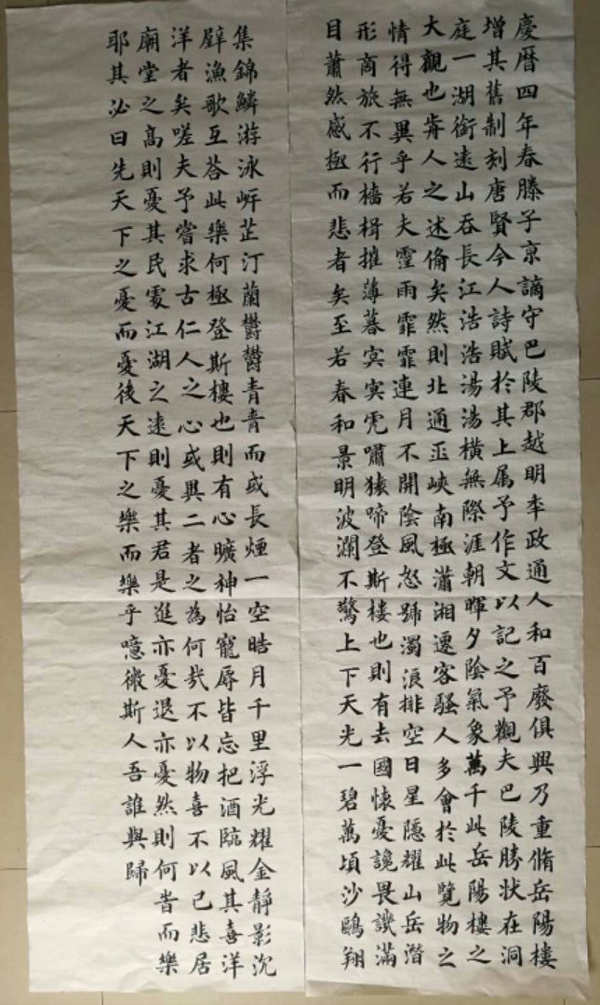 慶曆四年春滕子京謫守巴陵郡越明秊政通人和百廢俱興乃重脩岳陽樓
增其舊制刻唐賢今人詩賦於其上属予作文以記之予觀夫巴陵勝状在洞
庭一湖銜遠山吞長江浩浩湯湯橫無際涯朝暉夕陰氣象萬千此岳陽樓之
大觀也前人之述備矣然則北通巫峽南極瀟湘遷客騷人多會於此覽物之
情得無異乎若夫霪雨霏霏連月不開陰風怒號濁浪排空日星隱耀山岳潛
形商旅不行檣楫摧薄暮冥冥虎嘯猿啼登斯樓也則有去國懷憂讒畏譏滿
目蕭然感極而悲者矣至若春和景明波瀾不驚上下天光一碧萬頃沙鷗翔
集錦鱗游泳岸芷汀蘭欝欝青青而或長煙一空皓月千里浮光耀金靜影沉
璧漁歌互荅此樂何極登斯樓也則有心曠神怡寵辱皆忘把酒臨風其喜洋
洋者矣嗟夫予嘗求古仁人之心或異二者之為何哉不以物喜不以己悲居
廟堂之高則憂其民處江湖之遠則憂其君是進亦憂退亦憂然則何旹而樂
耶其必曰先天下之憂而憂後天下之樂而樂乎噫微斯人吾誰與歸